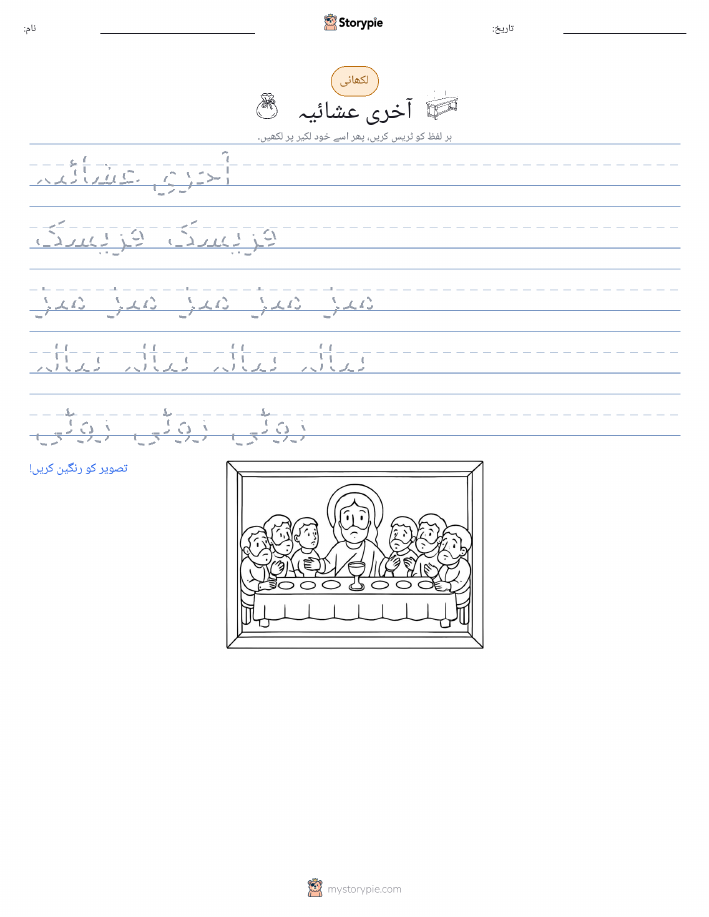 نام:
Storypie
تاریخ:
لکھائی
آخری عشائیہ
ہر لفظ کو ٹریس کریں، پھر اسے خود لکیر پر لکھیں۔
آخری عشائیہ
فریسک فریسک
میز میز میز میز میز
پیالہ پیالہ پیالہ پیالہ
روٹی روٹی روٹی
تصویر کو رنگین کریں!
mystorypie.com